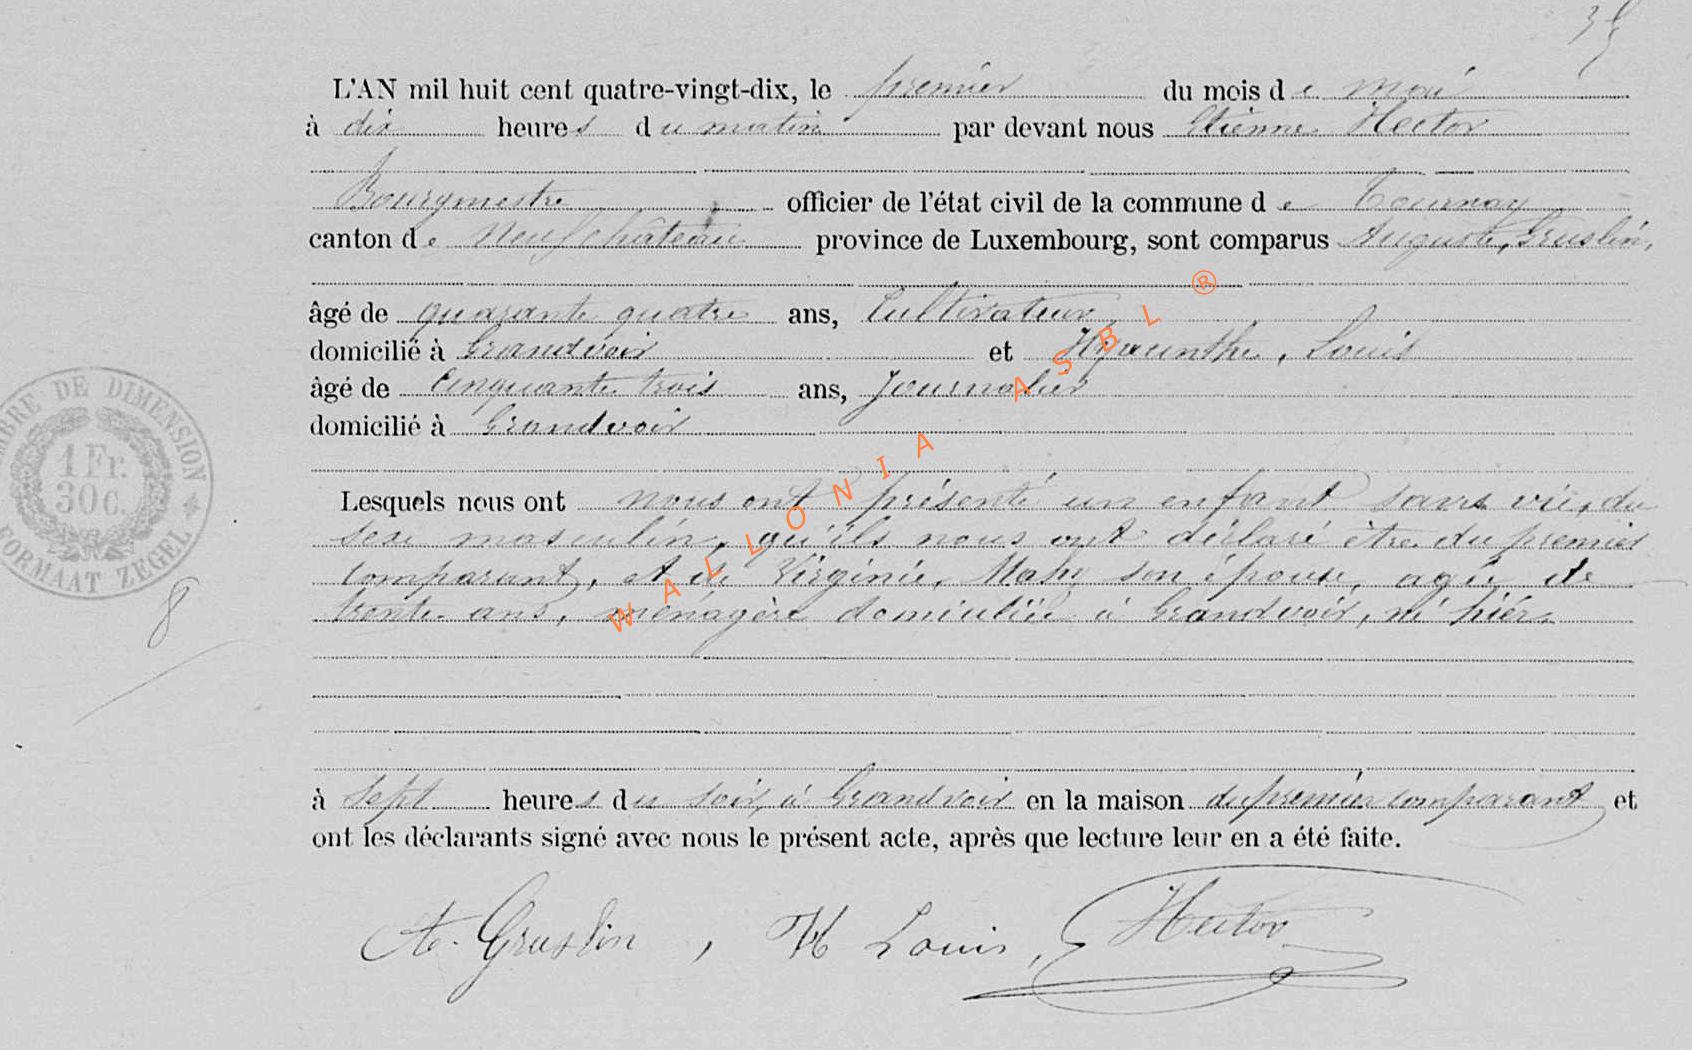 35
L'AN mil huit cent quatre-vingt-dix, le premier du mois de Mai
à dix heures du matin par devant nous Etienne Hector
Bourgmestre officier de l'état civil de la commune de Tournay
canton de Neufchâteau province de Luxembourg, sont comparus Auguste, Gruslin,
âgé de quarante quatre ans, Cultivateur
domicilié à Grandvoir et Hyacinthe, Louis
âgé de Cinquante trois ans, Journalier
domicilié à Grandvoir
Lesquels nous ont nous ont présenté un enfant sans vie, du
sexe masculin, qu'ils nous ont déclaré être du premier
comparant, et de Virginie, Mahy son épouse, agée de
trente ans, ménagère domiciliée à Grandvoir, né hier
à Sept heures du soir, à Grandvoir en la maison du premier comparant et
ont les déclarants signé avec nous le présent acte, après que lecture leur en a été faite.
A. Gruslin, H Louis, Hector
TIMBRE DE DIMENSION
1 Fr.
30 c.
FORMAAT ZEGEL
8
WALLONIA ASBL ®